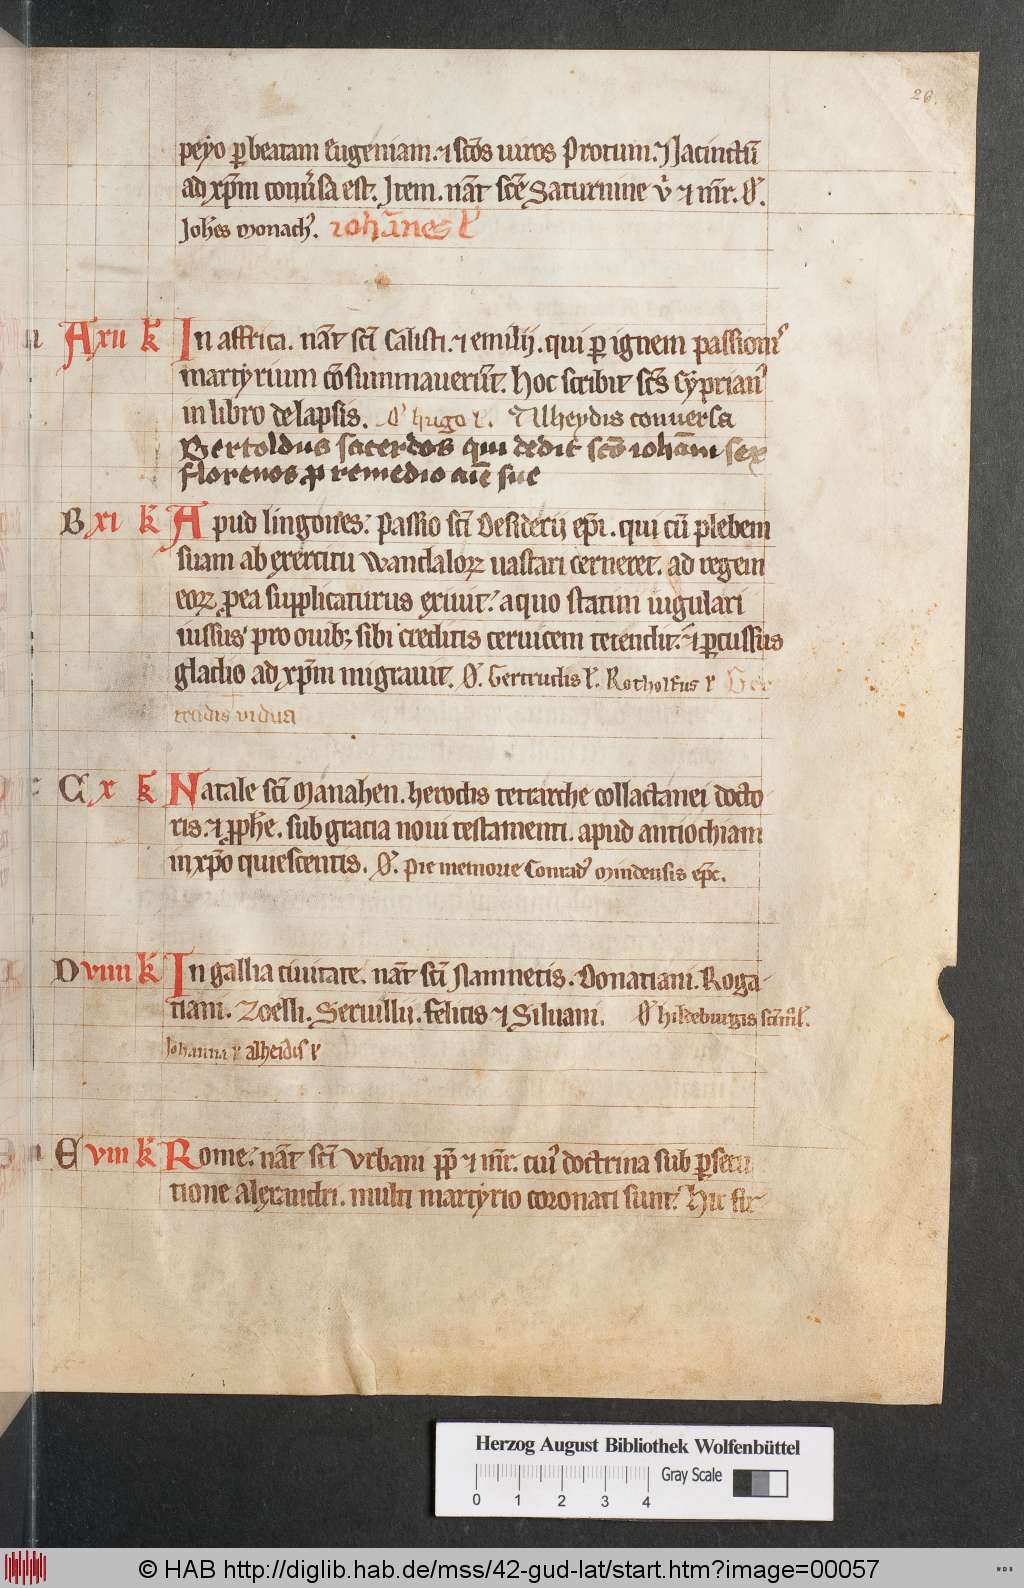 26.
peyo ꝑ beatam Eugeniam. ⁊ scōs uiros Protum. ⁊ Jacinctū
ad xp̄m conūsa est. Item. nāt scē Saturnine v̄ ⁊ mr̄. O᷒.
Joh̄es monach᷒. ioh̄anes
A xii k̄ In affrica. nāt sc̄i Calisti. ⁊ emilij. qui ꝑ ignem passionis
martyrium cōsummauerūt. hoc scribit sc̄s Cyprian᷒
in libro de lapsis. O᷒ hugo l᷒. Alheydis conuersa
Bertoldus sacerdos qui dedit sc̄o ioh̄ani sex
florenos ꝓ remedio aīe sue
B xi k̄ Apud lingones. passio sc̄i Desiderij ep̄i. qui cū plebem
suam ab exercitu wandaloꝝ uastari cerneret. ad regem
eoꝝ ꝓ ea supplicaturus exiuit. a quo statim iugulari
iussus pro ouibꝫ sibi creditis ceruicem tetendit. ⁊ ꝑcussus
gladio ad xp̄m migrauit. O᷒. Gertrudis l᷒. Rotholfus l᷒ Ger
trudis vidua
C x k̄ Natale sc̄i Manahen. herodis tetrarche collactanei docto
ris. ⁊ ꝓph̄e. sub gratia noui testamenti. apud antiochiam
in xp̄o quiescentis. O᷒. Pie memorie Conrad᷒ mindensis ep̄c.
D viiii k̄ In gallia ciuitate. nāt sc̄i Namnetis. Donatiani. Roga
tiani. Zoelli. Seruilii. felicis ⁊ Siluani. O᷒ hildeburgis
Johanna l᷒ alheidis l᷒
E viii k̄ Rome. nāt sc̄i Vrbani pp̄ ⁊ mr̄. cui᷒ doctrina sub ꝑsecu
tione alexandri. multi martyrio coronati sunt. Hic
Herzog August Bibliothek Wolfenbüttel
Gray Scale
0 1 2 3 4
© HAB http://diglib.hab.de/mss/42-gud-lat/start.htm?image=00057